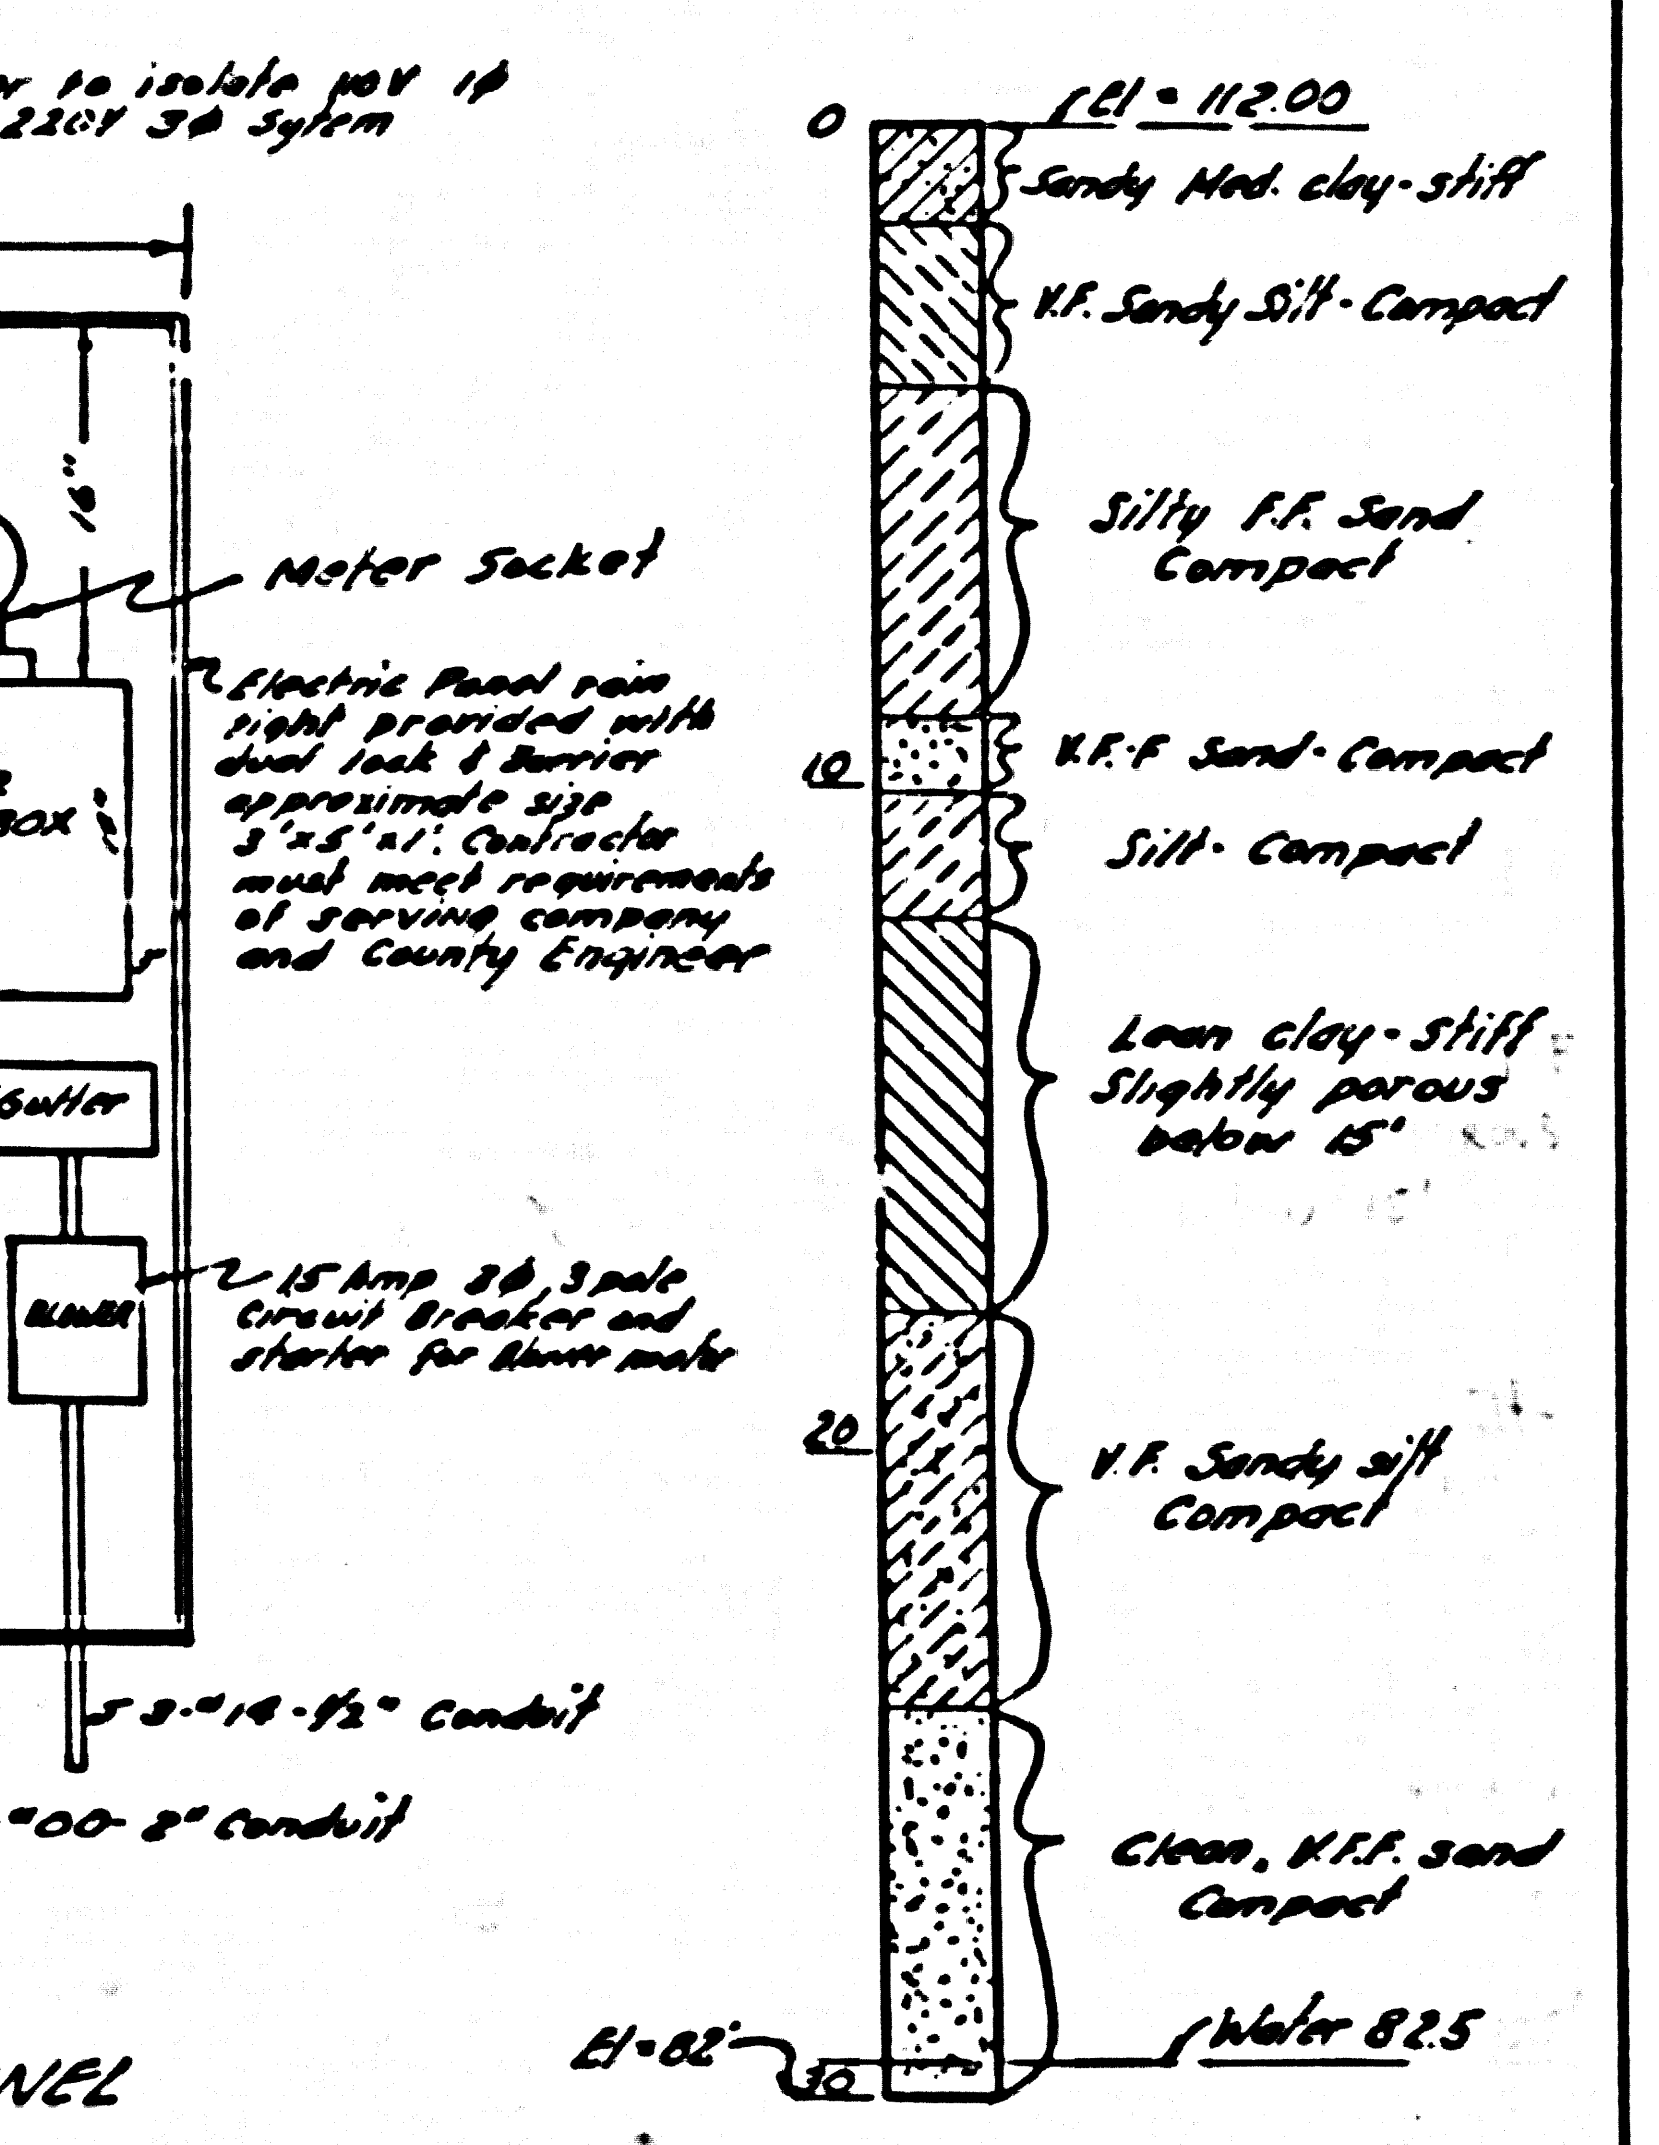 to isolate 110V 1φ
220V 3φ Sytem
16"
Meter Socket
Electric Panel rain
tight provided with
dual lock & Barrier
approximate size
3'x5'x1'. Contractor
must meet requirements
of serving company
and County Engineer
BOX
Gutter
BLOWER
15 Amp 3φ, 3 pole
Circuit Breaker and
starter for Blower motor
3-#14-1/2" Conduit
"00-2" Conduit
NEL
0
El = 112.00
Sandy Med. clay-stiff
V.F. Sandy Silt-Compact
Silty F.F. Sand
Compact
10
V.F.-F Sand-Compact
Silt-Compact
Lean clay-stiff
Slightly porous
below 15'
20
V.F. Sandy silt
Compact
Clean, V.F.F. sand
Compact
Water 82.5
El=82'
30